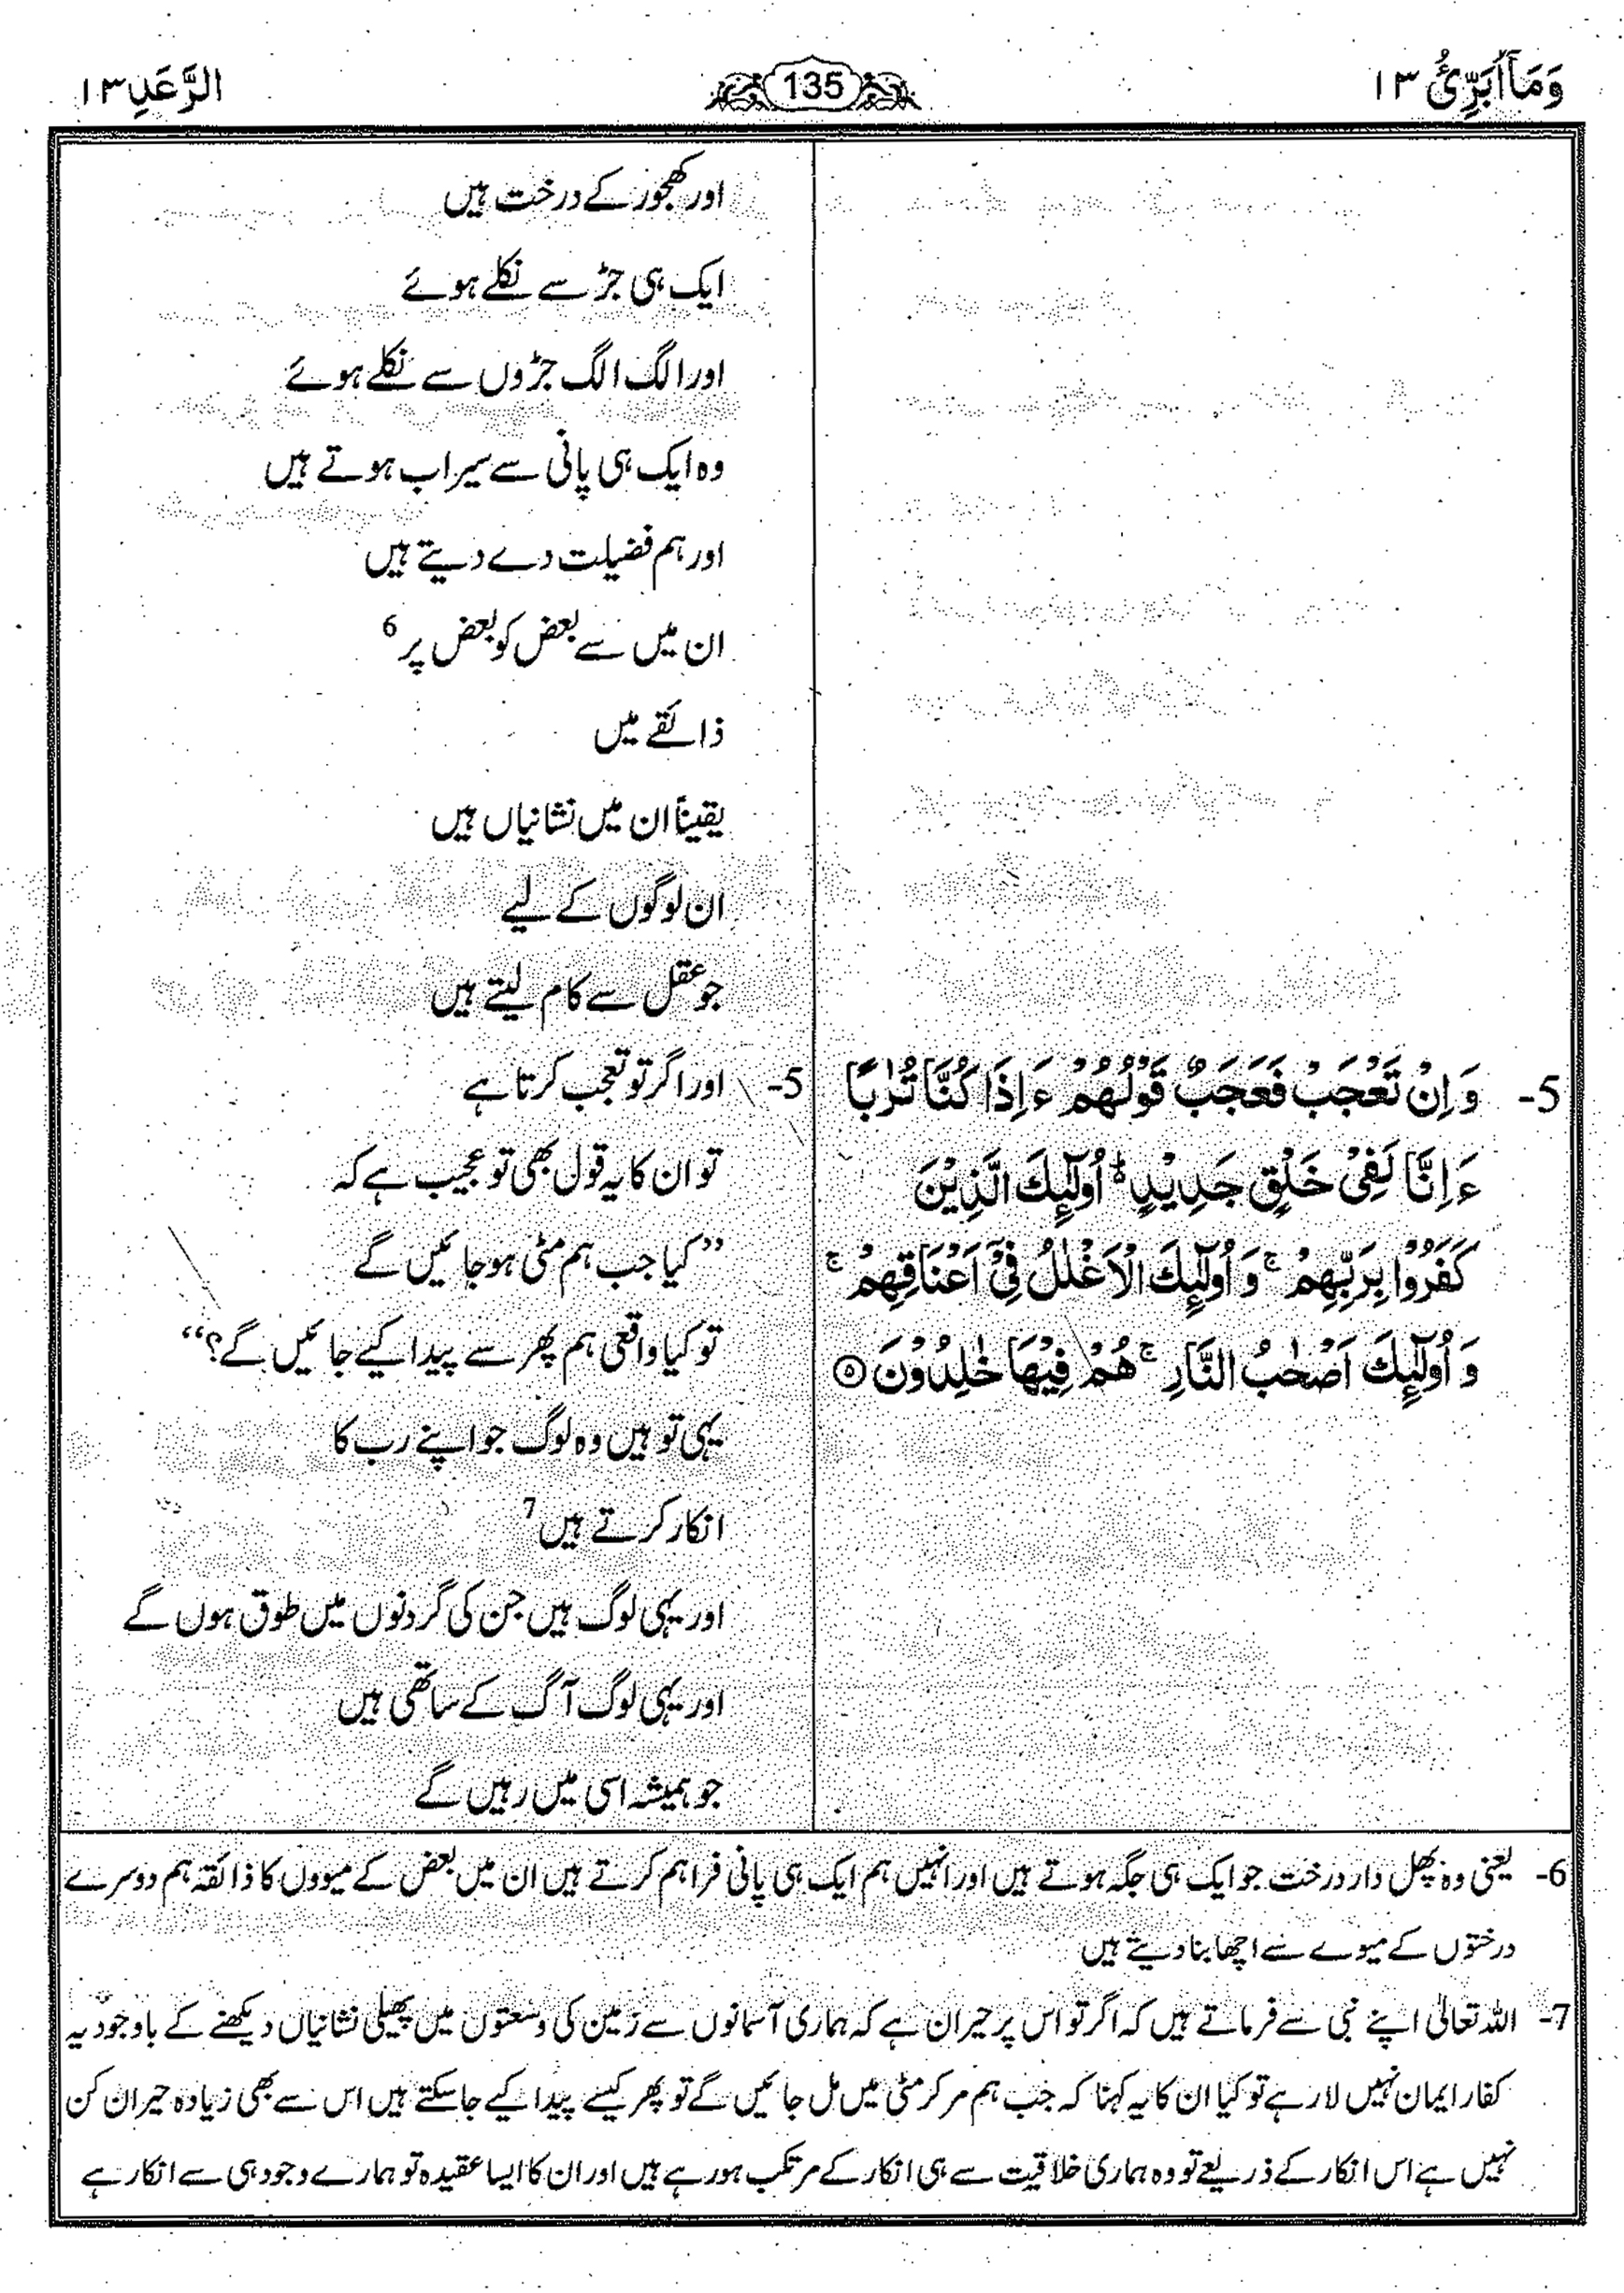 وَمَآ اُبَرِّئُ ۱۳
135
الرَّعَدِ ۱۳
اور کھجور کے درخت ہیں
ایک ہی جڑ سے نکلے ہوئے
اور الگ الگ جڑوں سے نکلے ہوئے
وہ ایک ہی پانی سے سیراب ہوتے ہیں
اور ہم فضیلت دے دیتے ہیں
ان میں سے بعض کو بعض پر 6
ذائقے میں
یقیناً ان میں نشانیاں ہیں
ان لوگوں کے لیے
جو عقل سے کام لیتے ہیں
5- وَ اِنْ تَعْجَبْ فَعَجَبٌ قَوْلُهُمْ ءَ اِذَا كُنَّا تُرٰبًا
ءَ اِنَّا لَفِيْ خَلْقٍ جَدِيْدٍ ؕ اُولٰٓئِكَ الَّذِيْنَ
كَفَرُوْا بِرَبِّهِمْ ۚ وَ اُولٰٓئِكَ الْاَغْلٰلُ فِيْۤ اَعْنَاقِهِمْ ۚ
وَ اُولٰٓئِكَ اَصْحٰبُ النَّارِ ۚ هُمْ فِيْهَا خٰلِدُوْنَ ۵
5- اور اگر تو تعجب کرتا ہے
تو ان کا یہ قول بھی تو عجیب ہے کہ
”کیا جب ہم مٹی ہو جائیں گے
تو کیا واقعی ہم پھر سے پیدا کیے جائیں گے؟“
یہی تو ہیں وہ لوگ جو اپنے رب کا
انکار کرتے ہیں 7
اور یہی لوگ ہیں جن کی گردنوں میں طوق ہوں گے
اور یہی لوگ آگ کے ساتھی ہیں
جو ہمیشہ اسی میں رہیں گے
6- یعنی وہ پھل دار درخت جو ایک ہی جگہ ہوتے ہیں اور انہیں ہم ایک ہی پانی فراہم کرتے ہیں ان میں بعض کے میووں کا ذائقہ ہم دوسرے
درختوں کے میوے سے اچھا بنا دیتے ہیں
7- اللہ تعالیٰ اپنے نبی سے فرماتے ہیں کہ اگر تو اس پر حیران ہے کہ ہماری آسمانوں سے زمین کی وسعتوں میں پھیلی نشانیاں دیکھنے کے باوجود یہ
کفار ایمان نہیں لا رہے تو کیا ان کا یہ کہنا کہ جب ہم مر کر مٹی میں مل جائیں گے تو پھر کیسے پیدا کیے جا سکتے ہیں اس سے بھی زیادہ حیران کن
نہیں ہے اس انکار کے ذریعے تو وہ ہماری خلاقیت سے ہی انکار کے مرتکب ہو رہے ہیں اور ان کا ایسا عقیدہ تو ہمارے وجود ہی سے انکار ہے